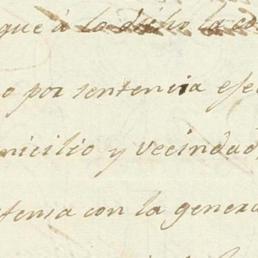 que à la dicho la
o por sentencia efe
micilio y vecindad
efensa con la genera